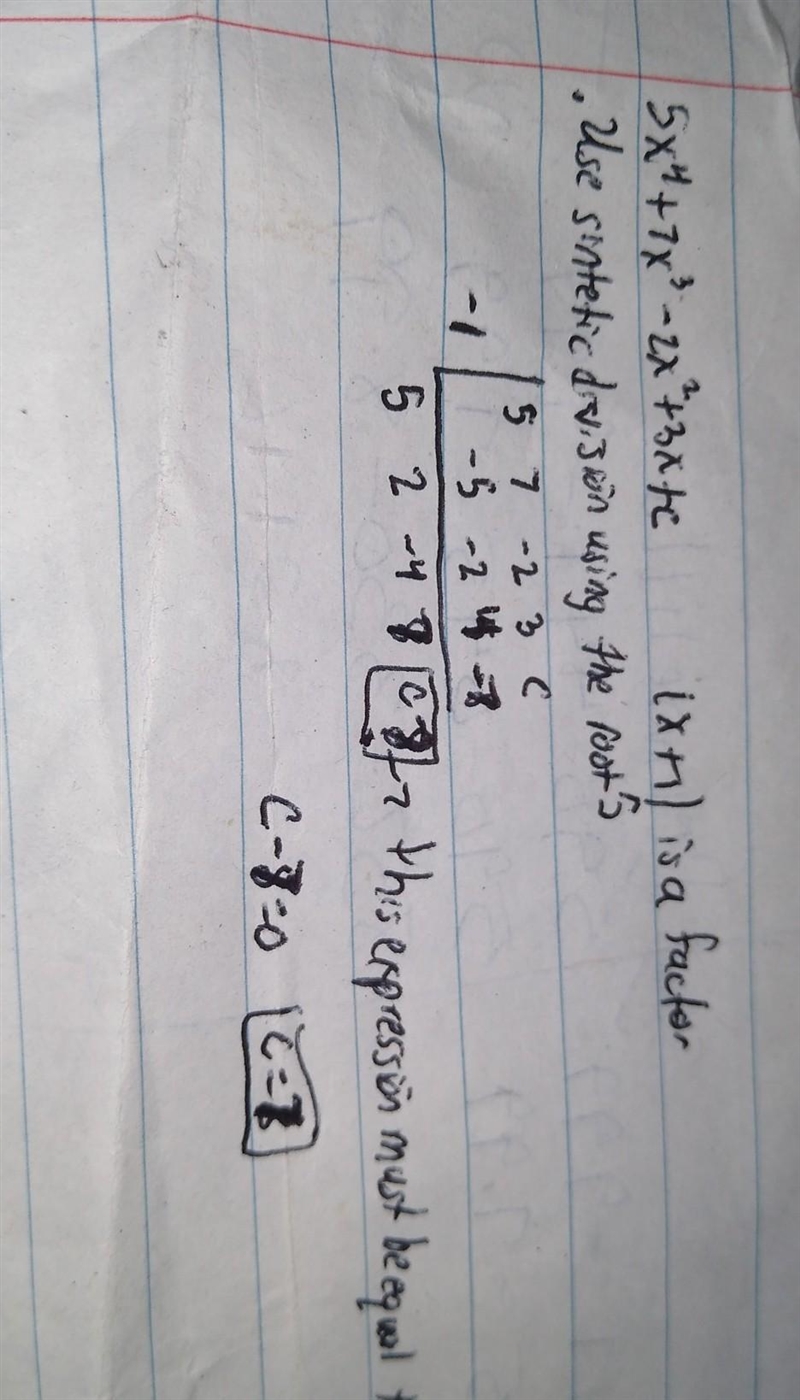 5x⁴ + 7x³ - 2x² + 3x + c (x + 1) is a factor
. Use sintetic division using the root's
-1 | 5 7 -2 3 c
-5 -2 4 -8
5 2 -4 7 c-8 → this expression must be equal
c - 8 = 0 c = 8